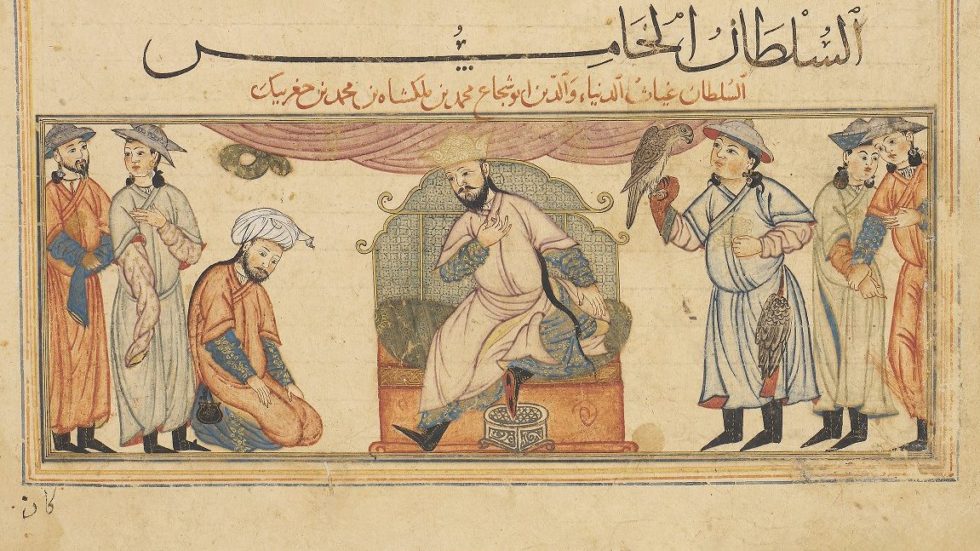 السلطان الخامس
السلطان غياث الدنياء والدين ابو شجاع محمد بن ملكشاه بن محمد بن جغربيك
كان